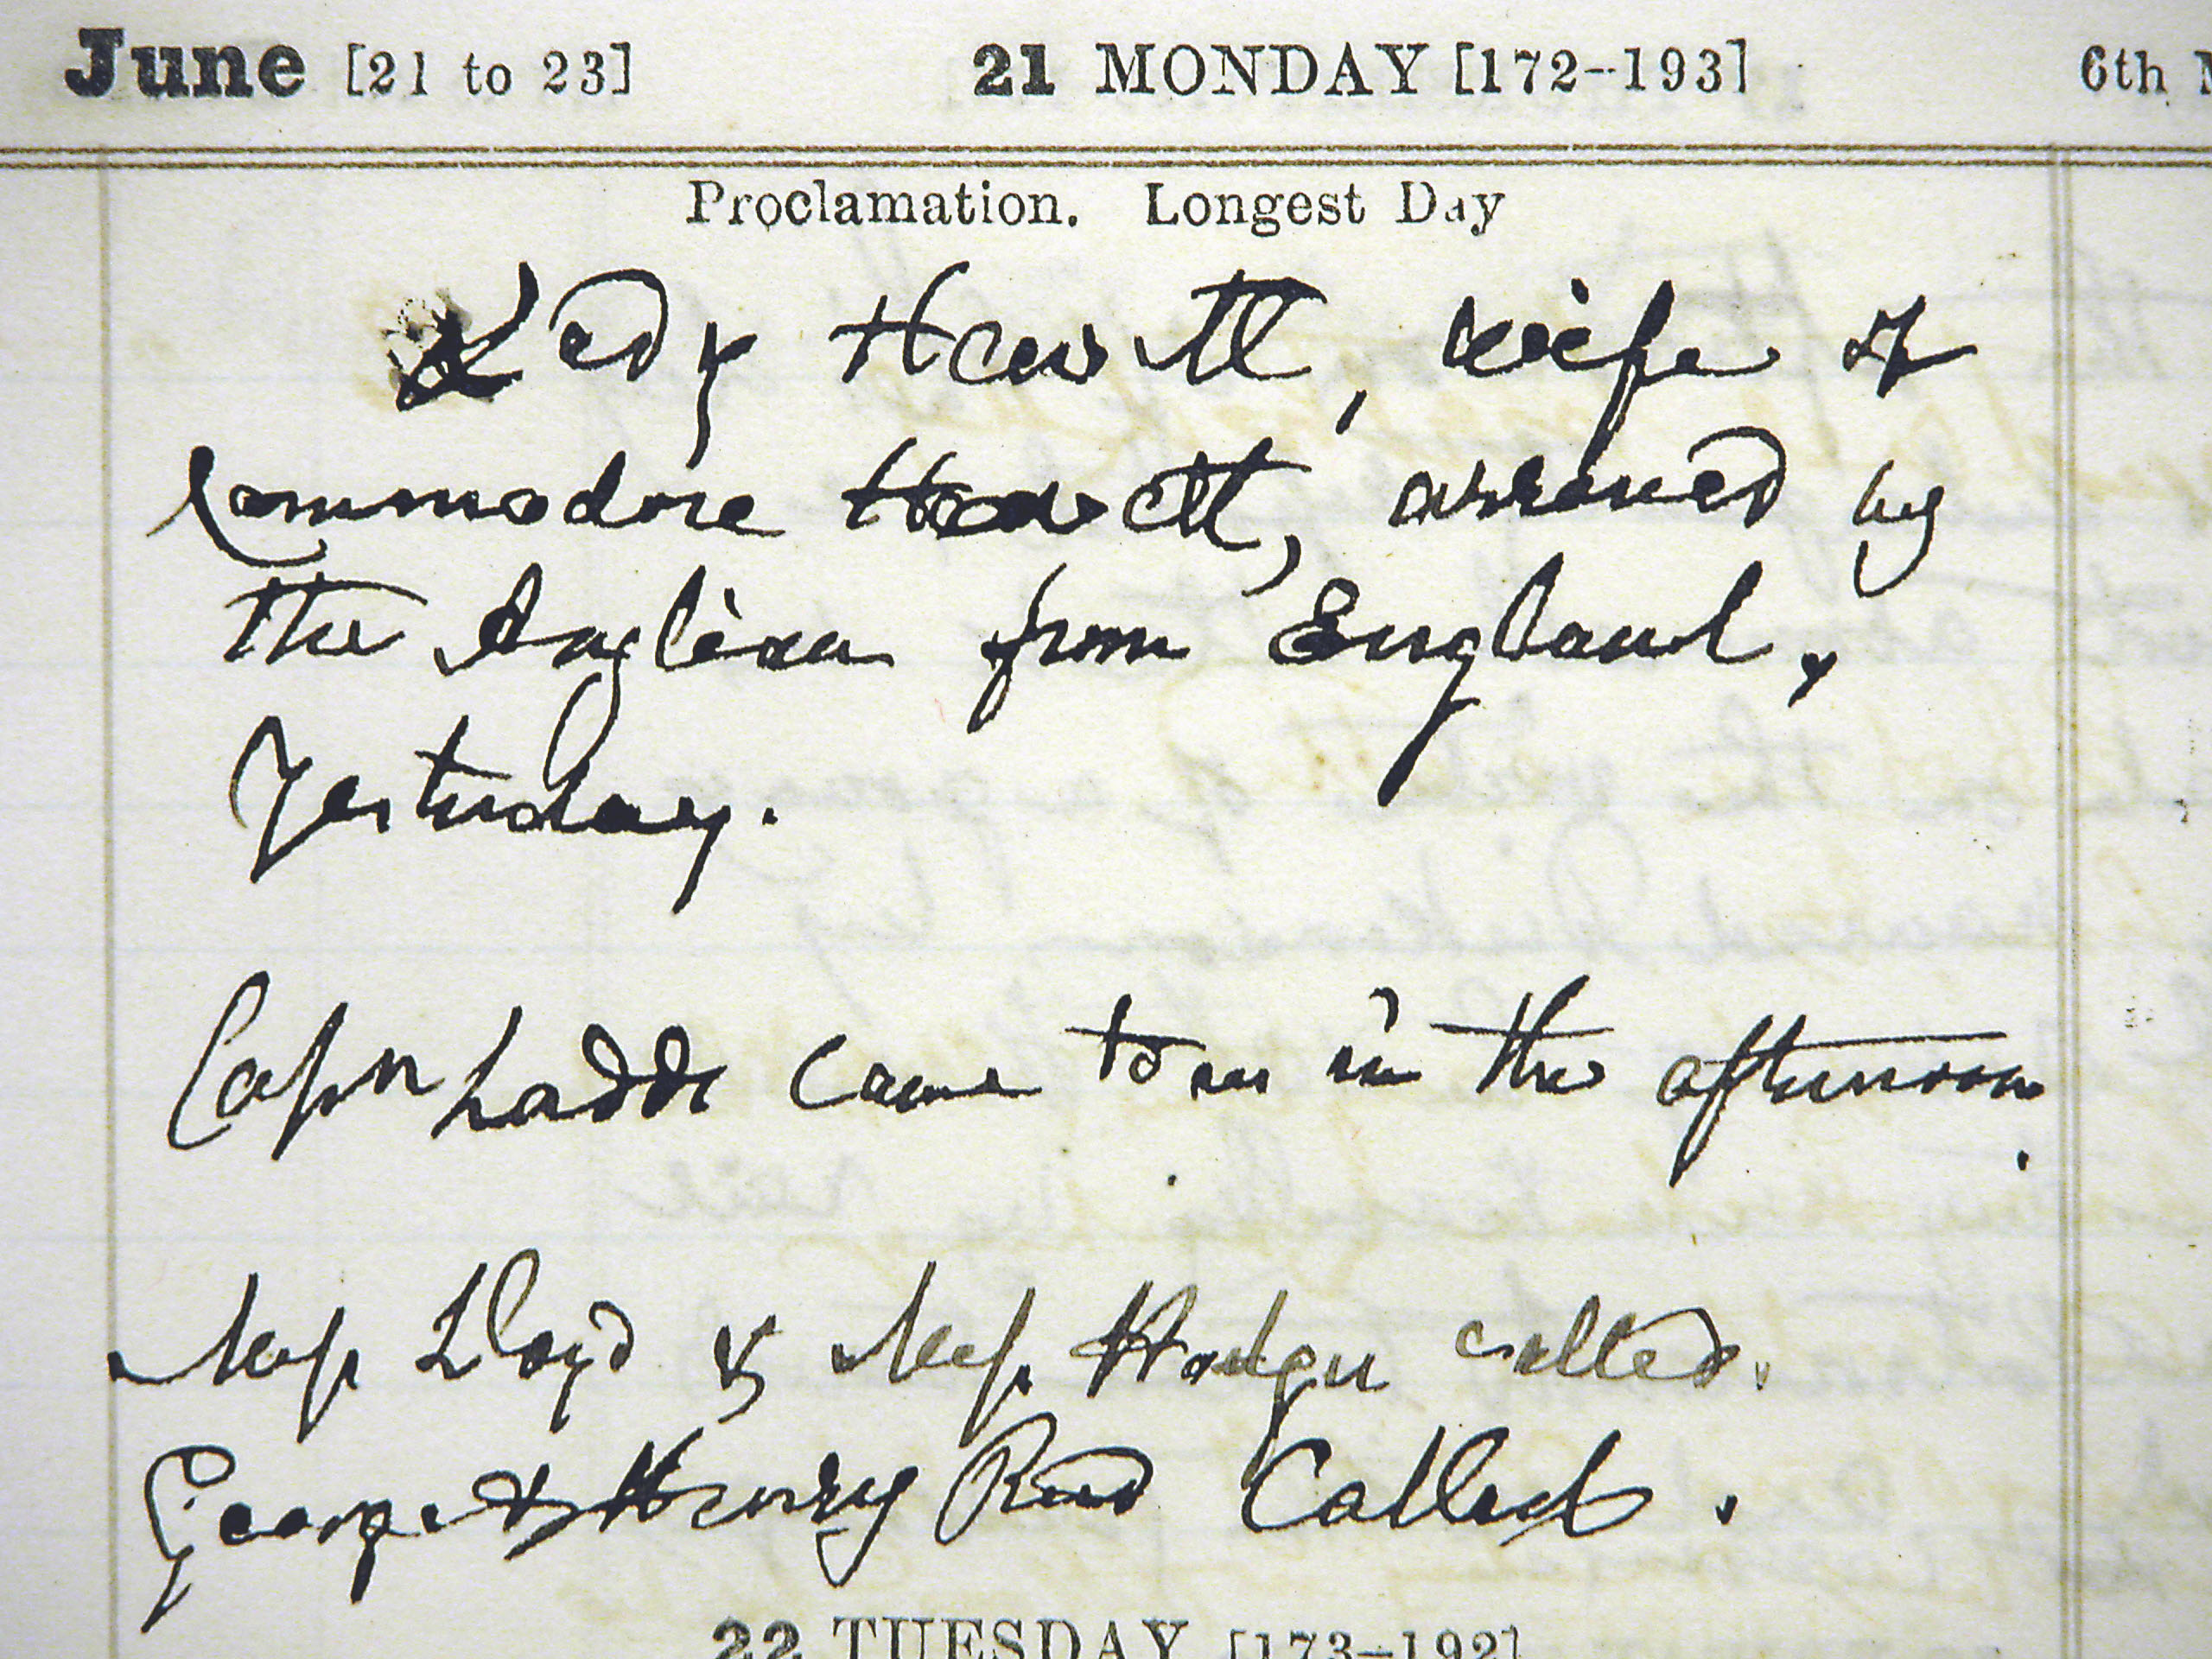 June [21 to 23] 21 MONDAY [172--193] 6th
Proclamation. Longest Day
Lady Hewett, wife of
Commodore Hewett, arrived by
the Anglian from England,
Yesterday.
Capn Ladds came to me in the afternoon.
Miss Lloyd & Miss Hodges called.
George & Henry Reed Called.
22 TUESDAY [173-192]